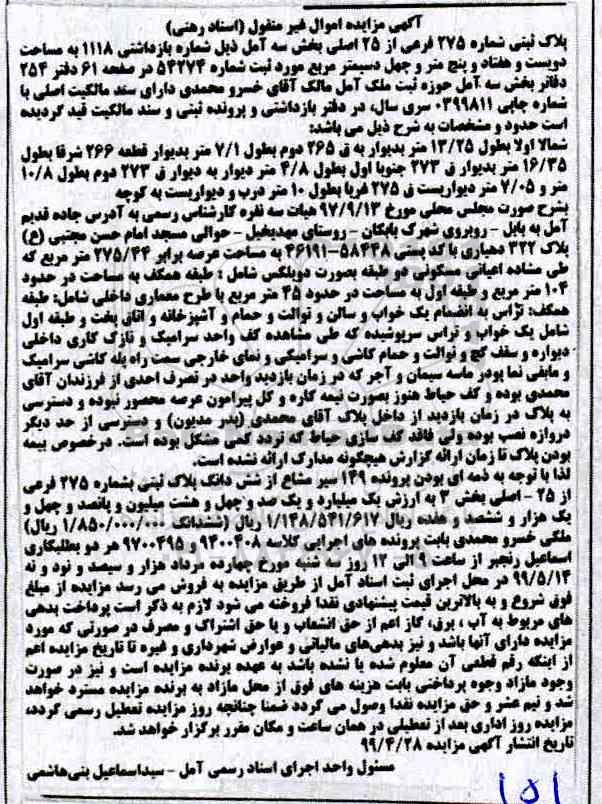 آگهی مزایده اموال غیر منقول (اسناد رهنی)
پلاک ثبتی شماره ۲۷۵ فرعی از ۲۵ اصلی بخش سه آمل ذیل شماره بازداشتی ۱۱۱۸ به مساحت
دویست و هفتاد و پنج متر و چهل دسیمتر مربع مورد ثبت شماره ۵۴۲۷۴ در صفحه ۶۱ دفتر ۲۵۴
دفاتر بخش سه آمل حوزه ثبت ملک آمل مالک آقای خسرو محمدی دارای سند مالکیت اصلی با
شماره چاپی ۰۳۹۹۸۱۱ سری سال، در دفتر بازداشتی و پرونده ثبتی و سند مالکیت قید گردیده
است حدود و مشخصات به شرح ذیل می باشد:
شمالا اولا بطول ۱۳/۲۵ متر بدیوار به ق ۲۶۵ دوم بطول ۷/۱ متر بدیوار قطعه ۲۶۶ شرقا بطول
۱۶/۳۵ متر بدیوار ق ۲۷۳ جنوبا اول بطول ۴/۸ متر دیوار به دیوار ق ۲۷۳ دوم بطول ۱۰/۸
متر و ۷/۰۵ متر دیواریست ق ۲۷۵ غربا بطول ۱۰ متر درب و دیواریست به کوچه
بشرح صورت مجلس محلی مورخ ۹۷/۹/۱۳ هیات سه نفره کارشناس رسمی به آدرس جاده قدیم
آمل به بابل - روبروی شهرک بابکان - روستای مهدیخیل - حوالی مسجد امام حسن مجتبی (ع)
پلاک ۳۲۲ دهیاری با کد پستی ۵۸۴۴۸-۴۶۱۹۱ به مساحت عرصه برابر ۲۷۵/۴۴ متر مربع که
طی مشاده اعیانی مسکونی دو طبقه بصورت دوبلکس شامل : طبقه همکف به مساحت در حدود
۱۰۴ متر مربع و طبقه اول به مساحت در حدود ۴۵ متر مربع با طرح معماری داخلی شامل: طبقه
همکف: تراس به انضمام یک خواب و سالن و توالت و حمام و آشپزخانه و اتاق پخت و طبقه اول
شامل یک خواب و تراس سرپوشیده که طی مشاهده کف واحد سرامیک و نازک کاری داخلی
دیواره و سقف گچ و توالت و حمام کاشی و سرامیکی و نمای خارجی سمت راه پله کاشی سرامیک
و مابقی نما پودر ماسه سیمان و آجر که در زمان بازدید واحد در تصرف احدی از فرزندان آقای
محمدی بوده و کف حیاط هنوز بصورت نیمه کاره و کل پیرامون عرصه محصور نبوده و دسترسی
به پلاک در زمان بازدید از داخل پلاک آقای محمدی (پدر مدیون) و دسترسی از حد دیگر
دروازه نصب بوده ولی فاقد کف سازی حیاط که تردد کمی مشکل بوده است. درخصوص بیمه
بودن پلاک تا زمان ارائه گزارش هیچگونه مدارک ارائه نشده است.
لذا با توجه به ذمه ای بودن پرونده ۱۴۹ سیر مشاع از شش دانگ پلاک ثبتی بشماره ۲۷۵ فرعی
از ۲۵ - اصلی بخش ۳ به ارزش یک میلیارد و یک صد و چهل و هشت میلیون و پانصد و چهل و
یک هزار و ششصد و هفده ریال ۱/۱۴۸/۵۴۱/۶۱۷ ریال (ششدانگ ۱/۸۵۰/۰۰۰/۰۰۰ ریال)
ملکی خسرو محمدی بابت پرونده های اجرایی کلاسه ۹۴۰۰۴۰۸ و ۹۷۰۰۴۹۵ هر دو بطلبکاری
اسماعیل رنجبر از ساعت ۹ الی ۱۲ روز سه شنبه مورخ چهارده مرداد هزار و سیصد و نود و نه
۹۹/۵/۱۴ در محل اجرای ثبت اسناد آمل از طریق مزایده به فروش می رسد مزایده از مبلغ
فوق شروع و به بالاترین قیمت پیشنهادی نقدا فروخته می شود لازم به ذکر است پرداخت بدهی
های مربوط به آب ، برق، گاز اعم از حق انشعاب و یا حق اشتراک و مصرف در صورتی که مورد
مزایده دارای آنها باشد و نیز بدهی‌های مالیاتی و عوارض شهرداری و غیره تا تاریخ مزایده اعم
از اینکه رقم قطعی آن معلوم شده یا نشده باشد به عهده برنده مزایده است و نیز در صورت
وجود مازاد وجوه پرداختی بابت هزینه های فوق از محل مازاد به برنده مزایده مسترد خواهد
شد و نیم عشر و حق مزایده نقدا وصول می گردد ضمنا چنانچه روز مزایده تعطیل رسمی گردد،
مزایده روز اداری بعد از تعطیلی در همان ساعت و مکان مقرر برگزار خواهد شد.
تاریخ انتشار آگهی مزایده ۹۹/۴/۲۸
مسئول واحد اجرای اسناد رسمی آمل - سیداسماعیل بنی‌هاشمی
۱۵۱